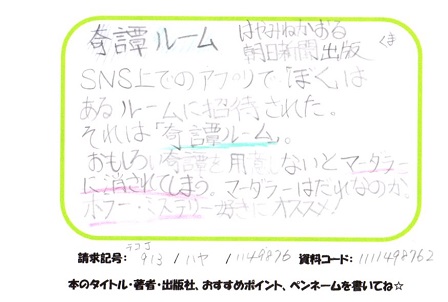 奇譚ルーム はやみねかおる
朝日新聞出版 くま
SNS上でのアプリで「ぼく」は
あるルームに招待された。
それは「奇譚ルーム」。
おもしろい奇譚を用意しないとマーダラー
に消されてしまう。マーダラーはだれなのか、
ホラー・ミステリー好きにオススメ!
請求記号: 913 / ハヤ / 1149876 資料コード: 1111498762
本のタイトル・著者・出版社、おすすめポイント、ペンネームを書いてね☆